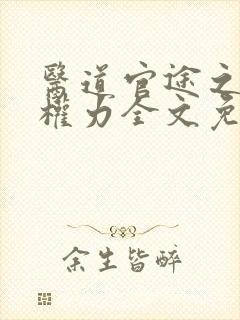 醫道官途之
權力全文免
余生皆醉